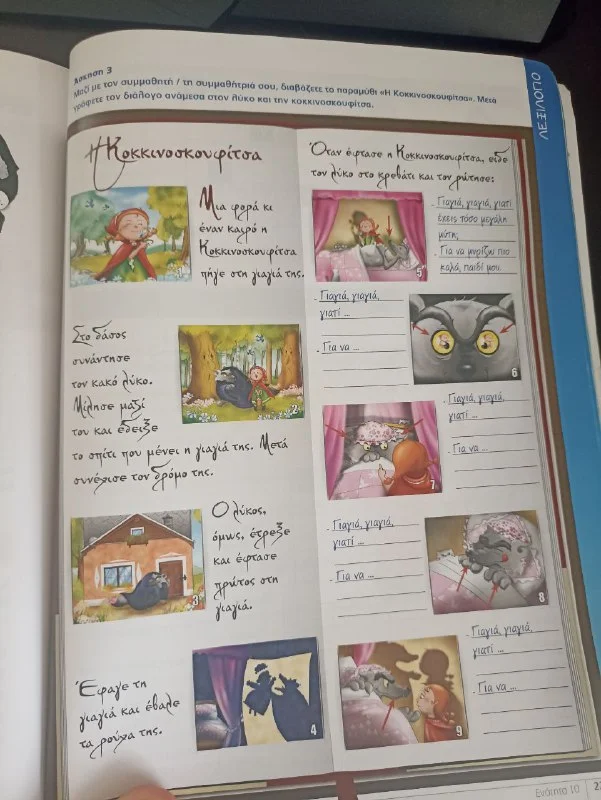 Άσκηση 3
Μαζί με τον συμμαθητή / τη συμμαθήτριά σου, διαβάζετε το παραμύθι «Η Κοκκινοσκουφίτσα». Μετά
γράφετε τον διάλογο ανάμεσα στον λύκο και την κοκκινοσκουφίτσα.
ΛΕΞΙΛΟΓΙΟ
Η Κοκκινοσκουφίτσα
Μια φορά κι
έναν καιρό η
Κοκκινοσκουφίτσα
πήγε στη γιαγιά της.
1
Στο δάσος
συνάντησε
τον κακό λύκο.
Μίλησε μαζί
του και έδειξε
το σπίτι που μένει η γιαγιά της. Μετά
συνέχισε τον δρόμο της.
2
Ο λύκος,
όμως, έτρεξε
και έφτασε
πρώτος στη
γιαγιά.
3
Έφαγε τη
γιαγιά και έβαλε
τα ρούχα της.
4
Όταν έφτασε η Κοκκινοσκουφίτσα, είδε
τον λύκο στο κρεβάτι και τον ρώτησε:
5
- Γιαγιά, γιαγιά, γιατί
έχεις τόσο μεγάλη
μύτη;
- Για να μυρίζω πιο
καλά, παιδί μου.
- Γιαγιά, γιαγιά,
γιατί ...
- Για να ...
6
- Γιαγιά, γιαγιά,
γιατί ...
- Για να ...
7
- Γιαγιά, γιαγιά,
γιατί ...
- Για να ...
8
- Γιαγιά, γιαγιά,
γιατί ...
- Για να ...
9
Ενότητα 10